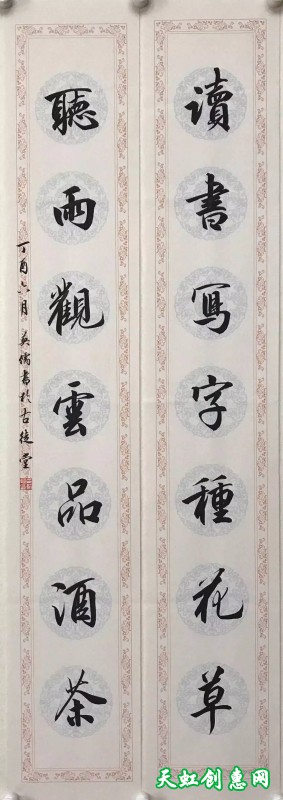 讀書寫字種花草
聽雨觀雲品酒茶
丁酉六月英儒書於古徒堂
天虹创惠网